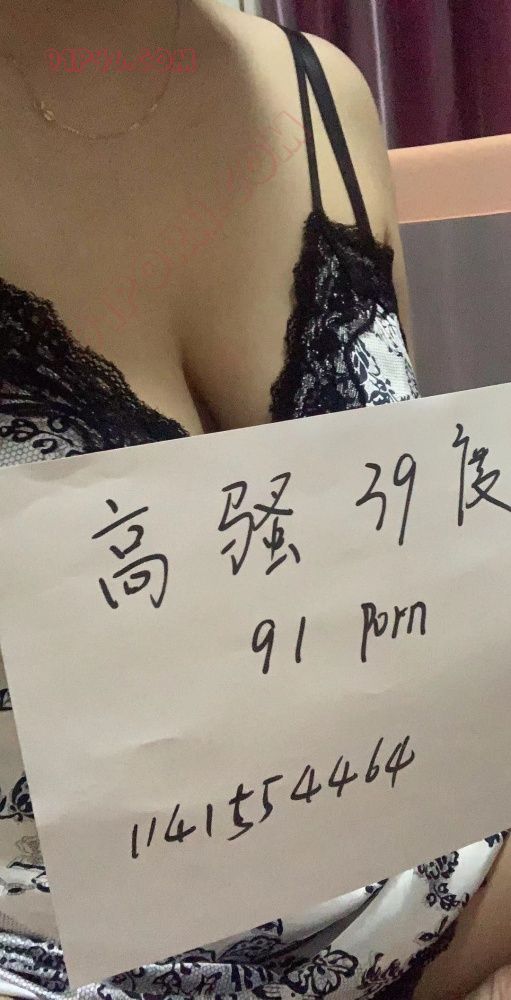 91PORN.COM
高骚39度
91 Porn
1141554464